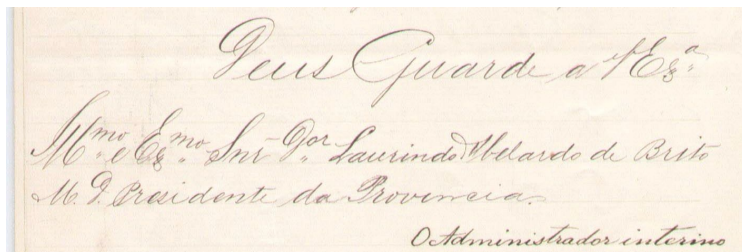 Deus Guarde a V Exª
Illmo e Exmo Snr Dor Laurindo Abelardo de Brito
M. D. Presidente da Provincia.
O Administrador interino